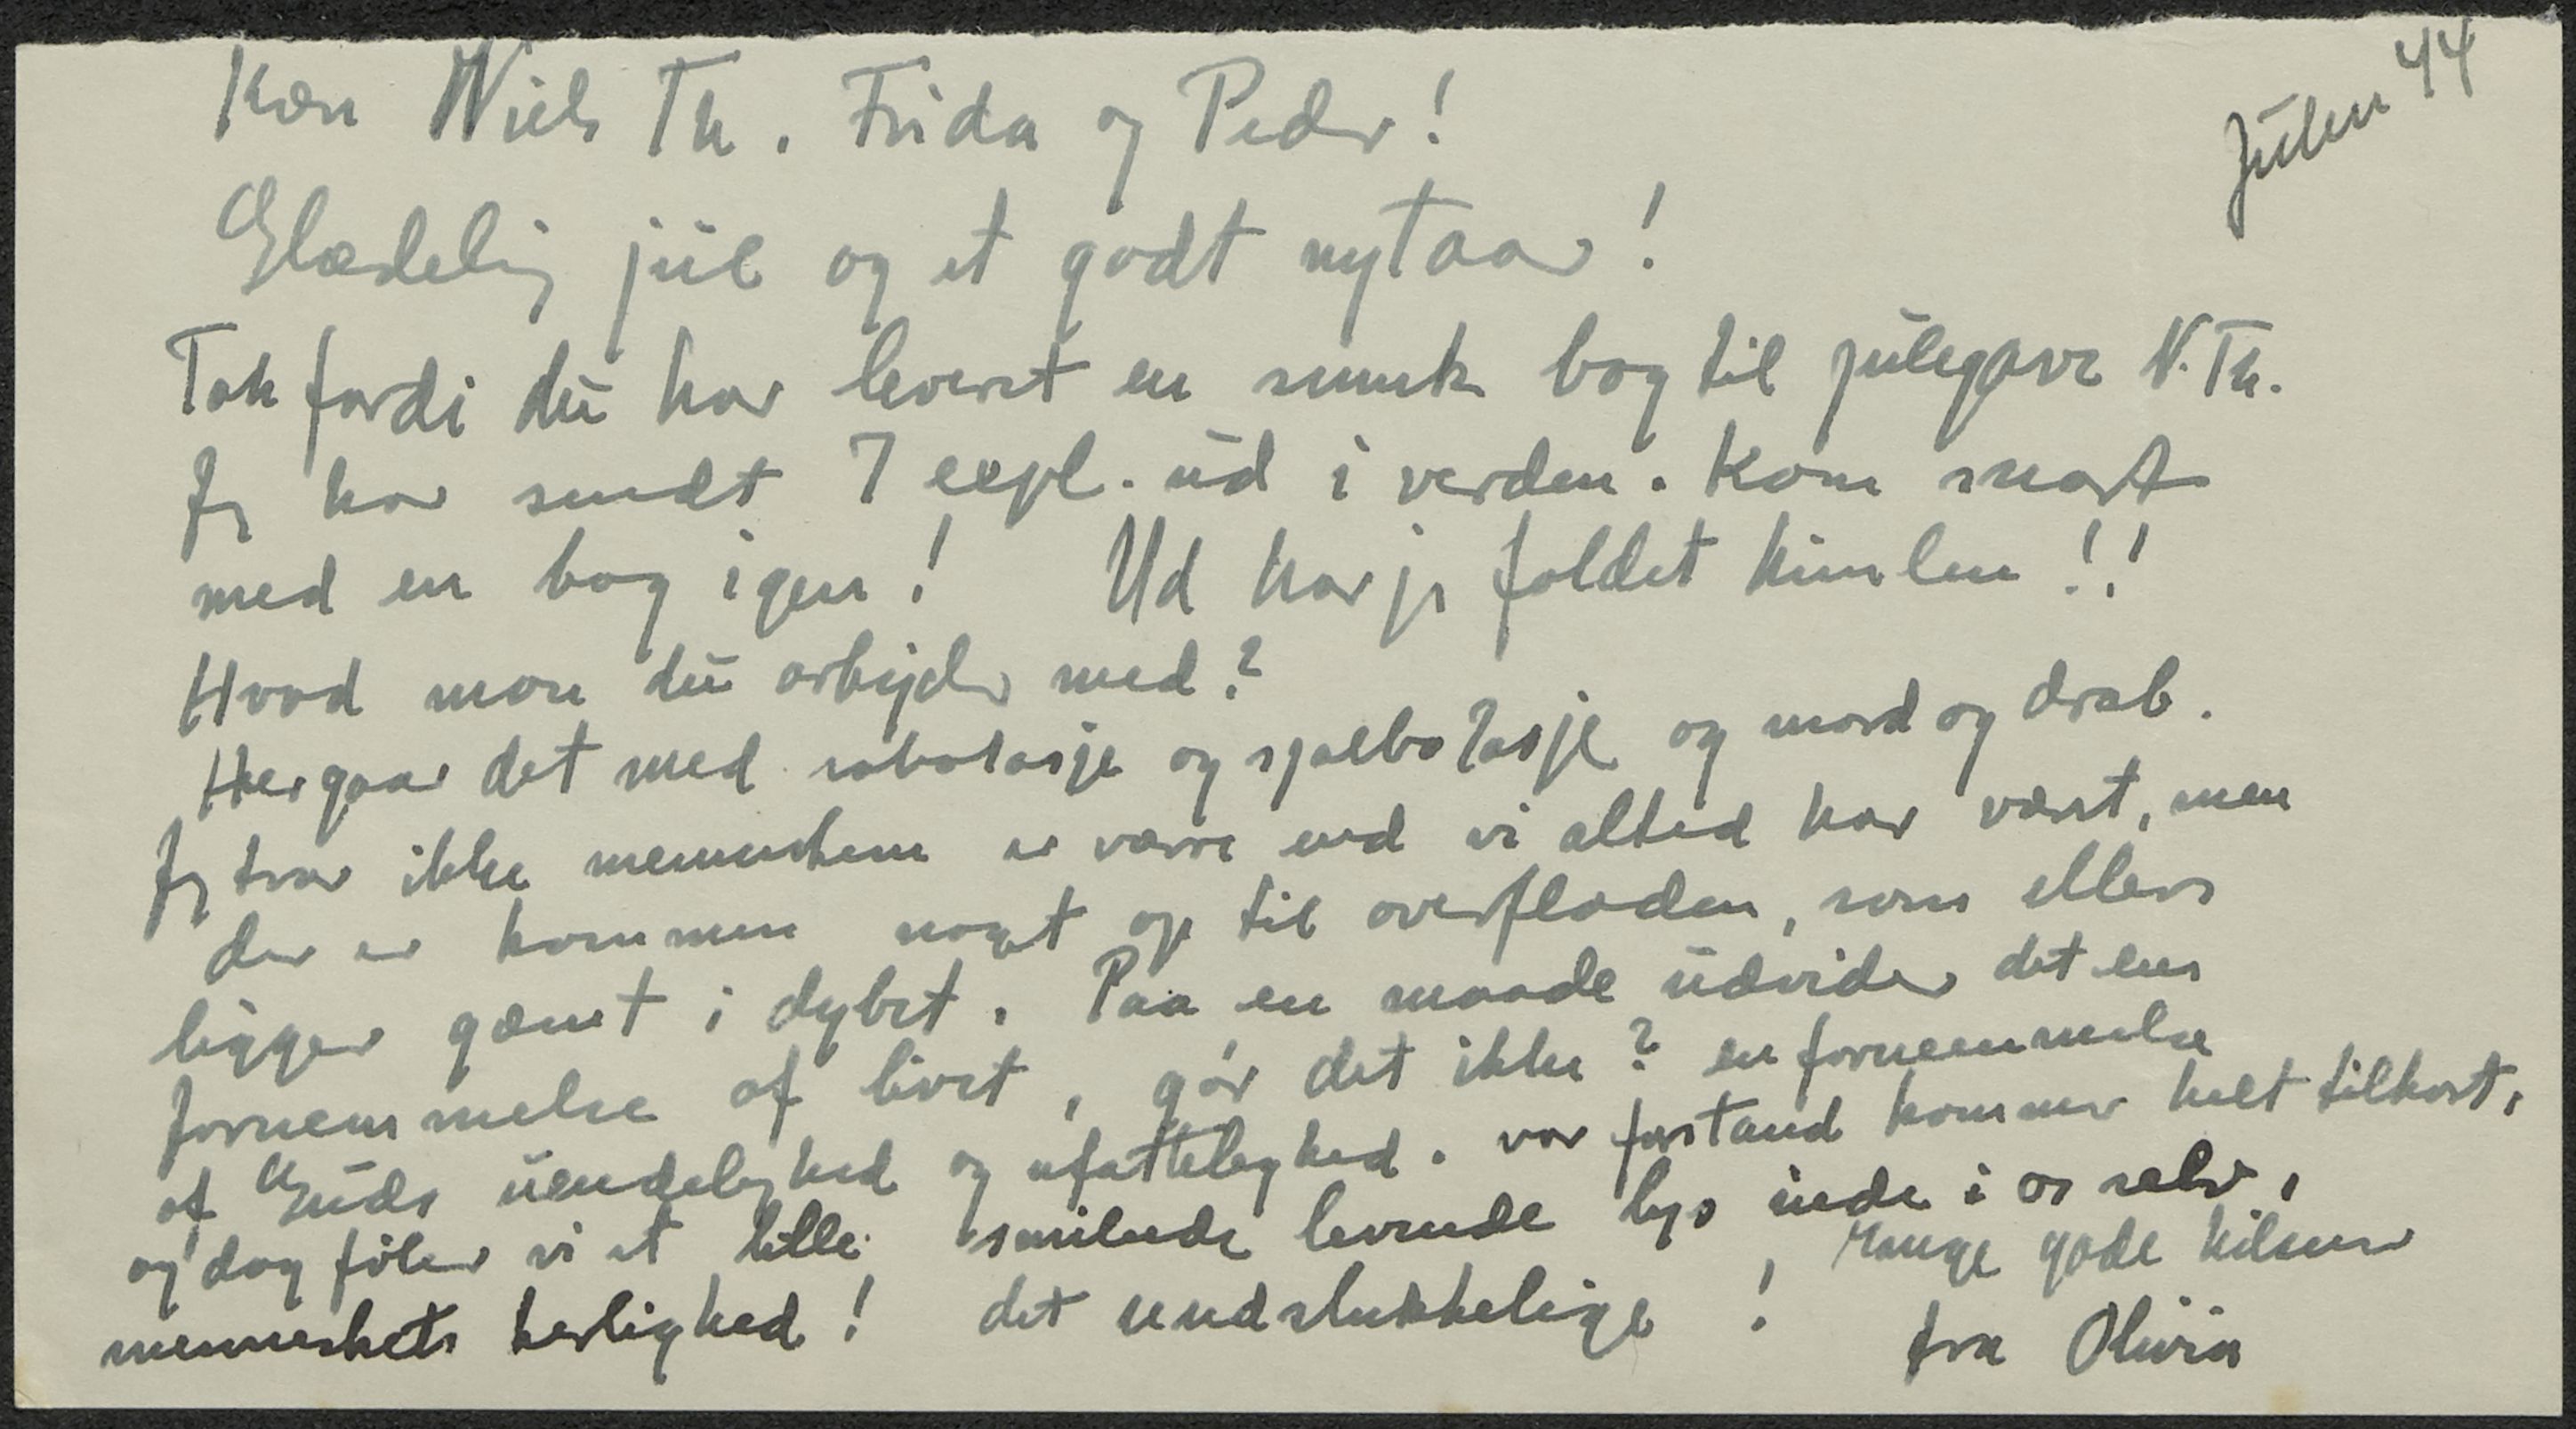 Julen 44
Kær Niels Th. Frida og Peder!
Glædelig jul og et godt nytaar!
Tak fordi du har leveret en smuk bog til julegave N. Th.
Jeg har sendt 7 expl. ud i verden. Kom snart
med en bog igen! Ud har jeg foldet himlen!!
Hvad mon du arbejder med?
Her gaar det med sabotasje og sjalbotasje og mord og drab.
Jeg tror ikke menneskene er værre end vi altid har været, men
der er kommen noget op til overfladen, som ellers
ligger gæmt i dybet. Paa en maade udvider det ens
fornemmelse af livet, gør det ikke? en fornemmelse
af Guds uendelighed og ufattelighed. vor forstand kommer helt tilkort,
og dog føler vi et lille smilende levende lys inde i os selv,
menneskets herlighed! det uudslukkelige! Mange gode hilsener
fra Olivia